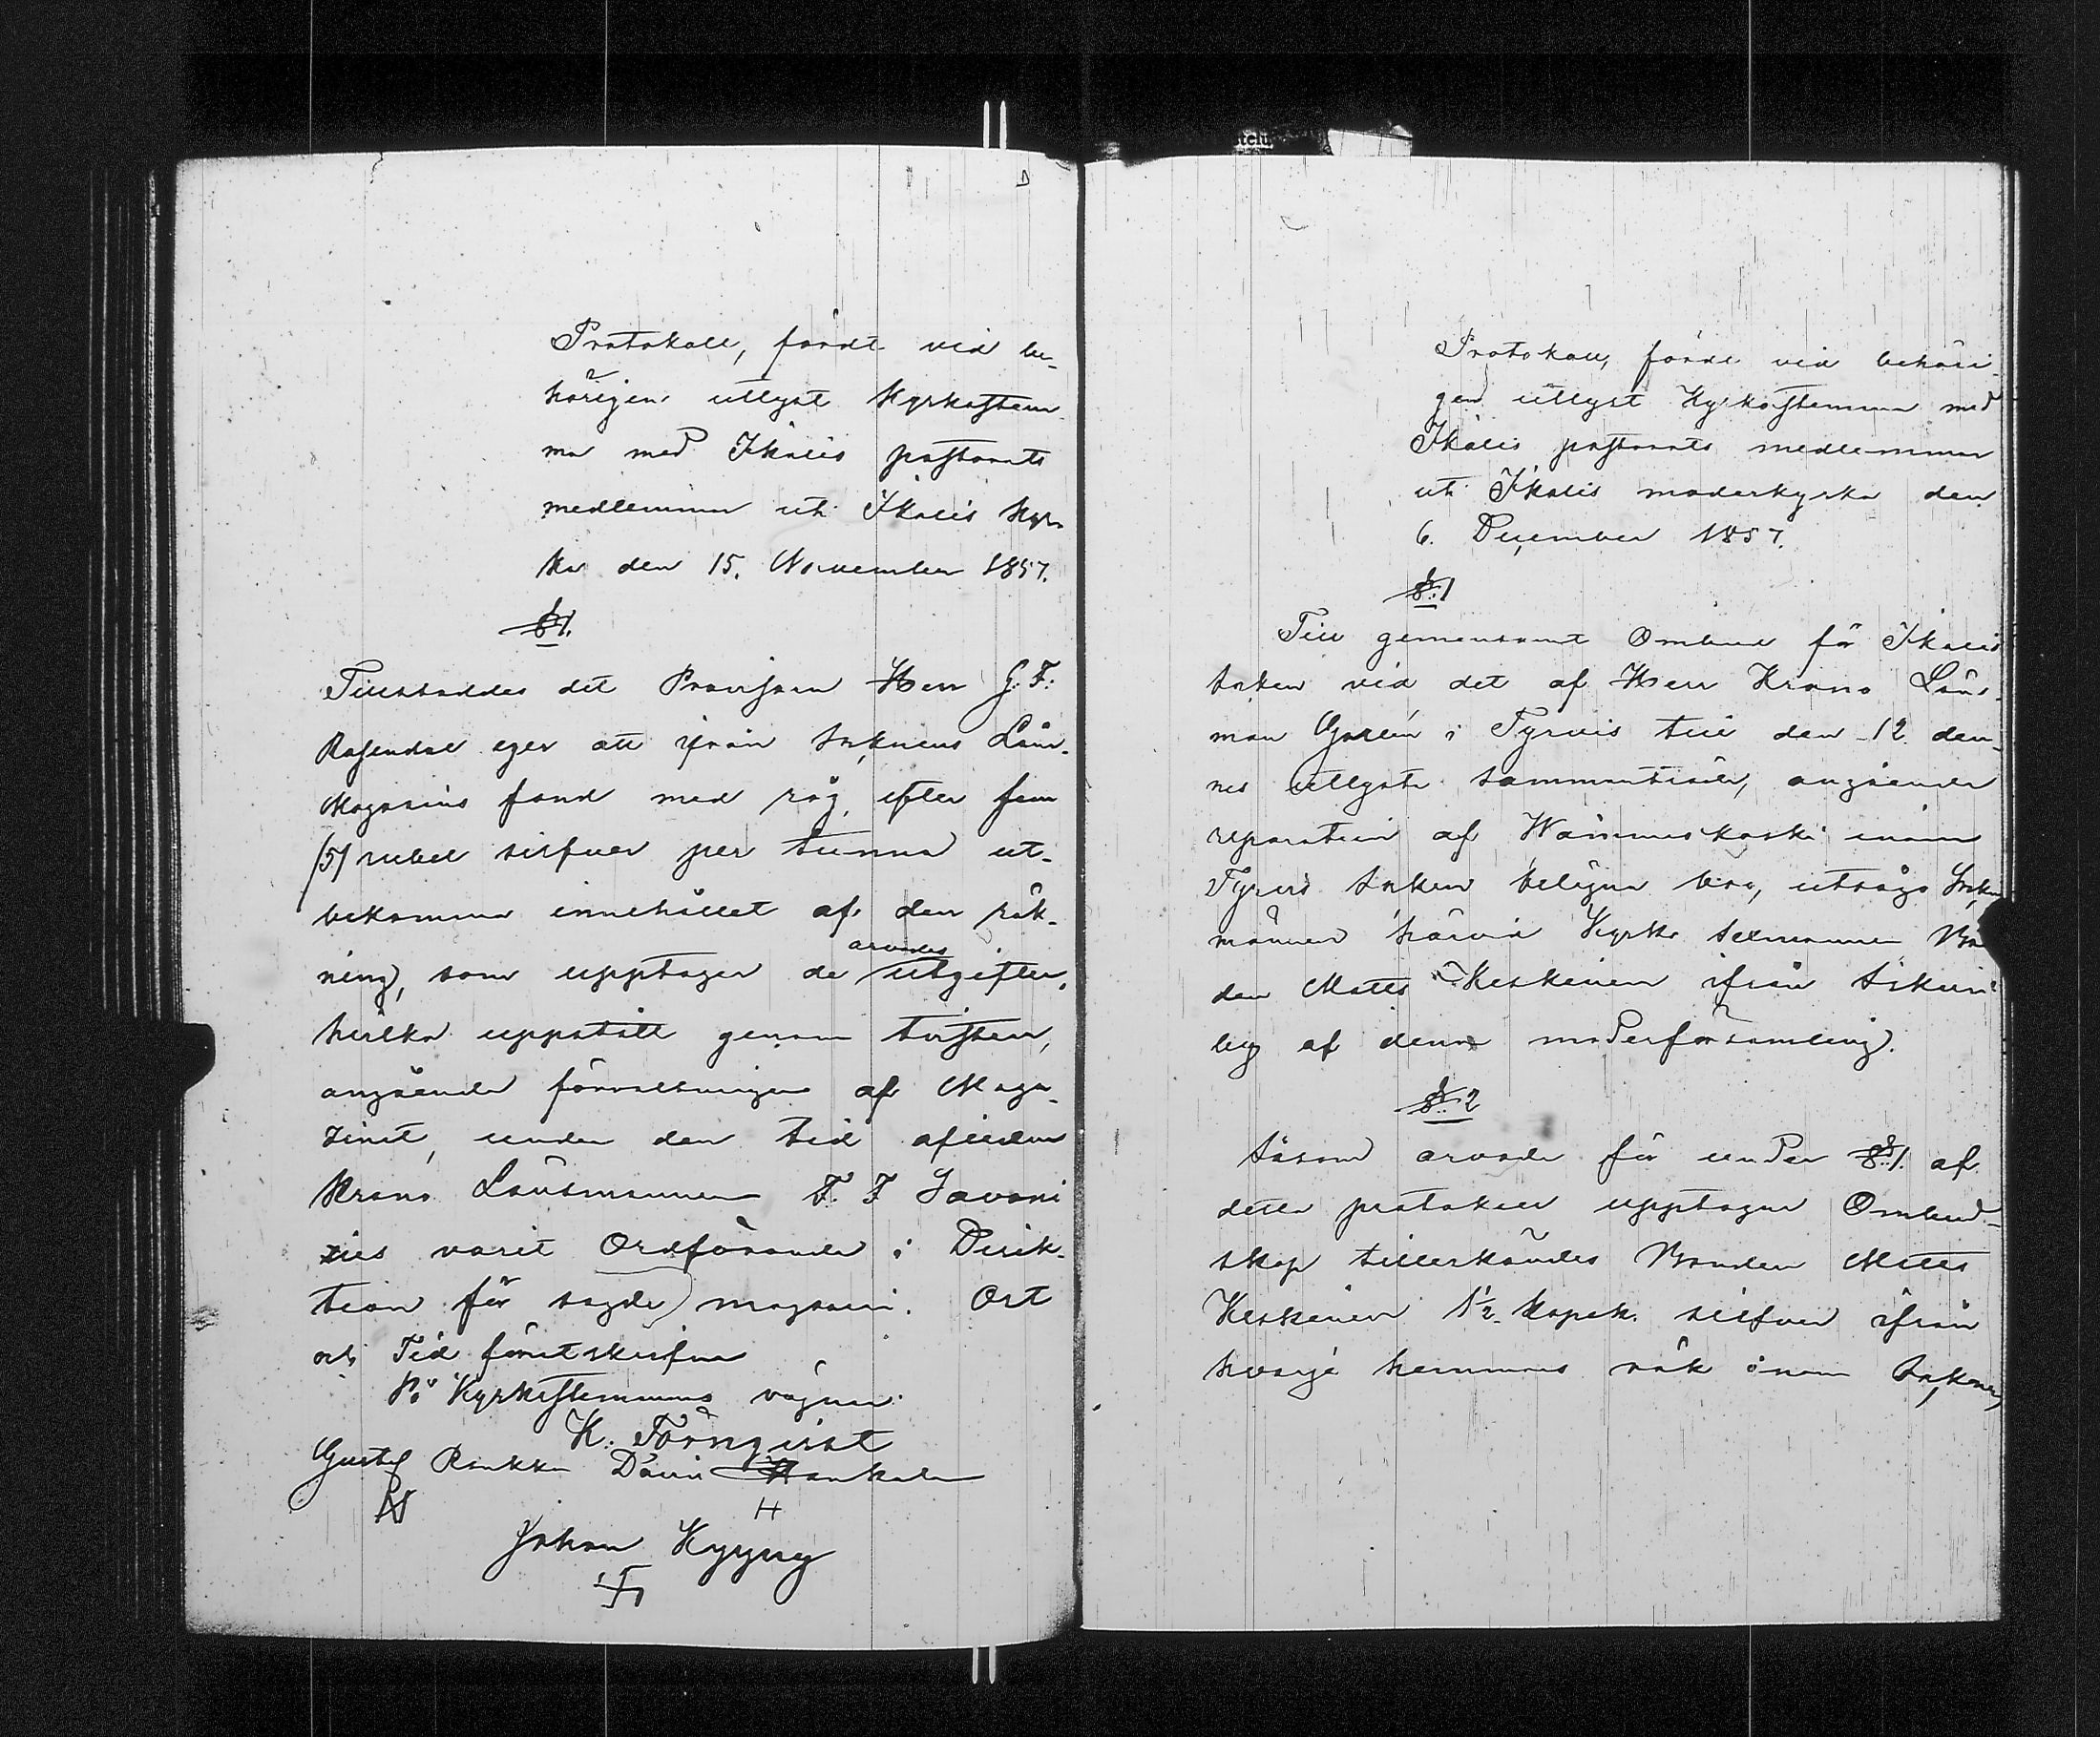 Protokoll, fördt vid be-
hörigen utlyst Kyrkostem-
ma med Ikalis pastorats
medlemmar uti Ikalis Kyr-
ka den 15. November 1857.
§ 1.
Tillstaddes det Provisorn Herr G. F.
Rosendal eger att ifrån Soknens Lån-
Magasins fond med råg, efter fem
/5/ rubel silfver per tunna ut-
bekomma innehållet af den räk-
ning, som upptager de arvodes utgifter,
hvilka uppstått genom tvisten,
angående förvaltningen af Maga-
zinet, under den tid aflidne
Krono Länsmannen F. F. Savoni
us varit Ordförande i Direk-
tion för sagde magasin. Ort
och Tid förutskrifne
På Kyrkostemmans vägnar
K. Törnqvist
Gustaf Rankka David Hankala
H
Johan Kyyny
Protokoll, fördt vid behöri-
gen utlyst Kyrkostemma med
Ikalis pastorats medlemmar
uti Ikalis moderkyrka den
6. December 1857.
§ 1
Till gemensamt Ombud för Ikalis
Soken vid det af Herr Krono Läns-
man Gorén i Tyrvis till den 12 den-
nes utlyste sammanträde, angående
reparation af Wammaskoski inom
Tyrvis Soken belägna bro, utsågo Sokne
männen härvid Kyrko sexmannen Bon
den Matts Keskinen ifrån Sikuri
by af denna moderförsamling.
§ 2
Såsom arvode för under § 1. af
detta protokoll upptagne Ombud-
skap tillerkändes Bonden Matts
Keskinen 1½ kopek. silfver ifrån
hvarje hemmans rök inom Soknen,